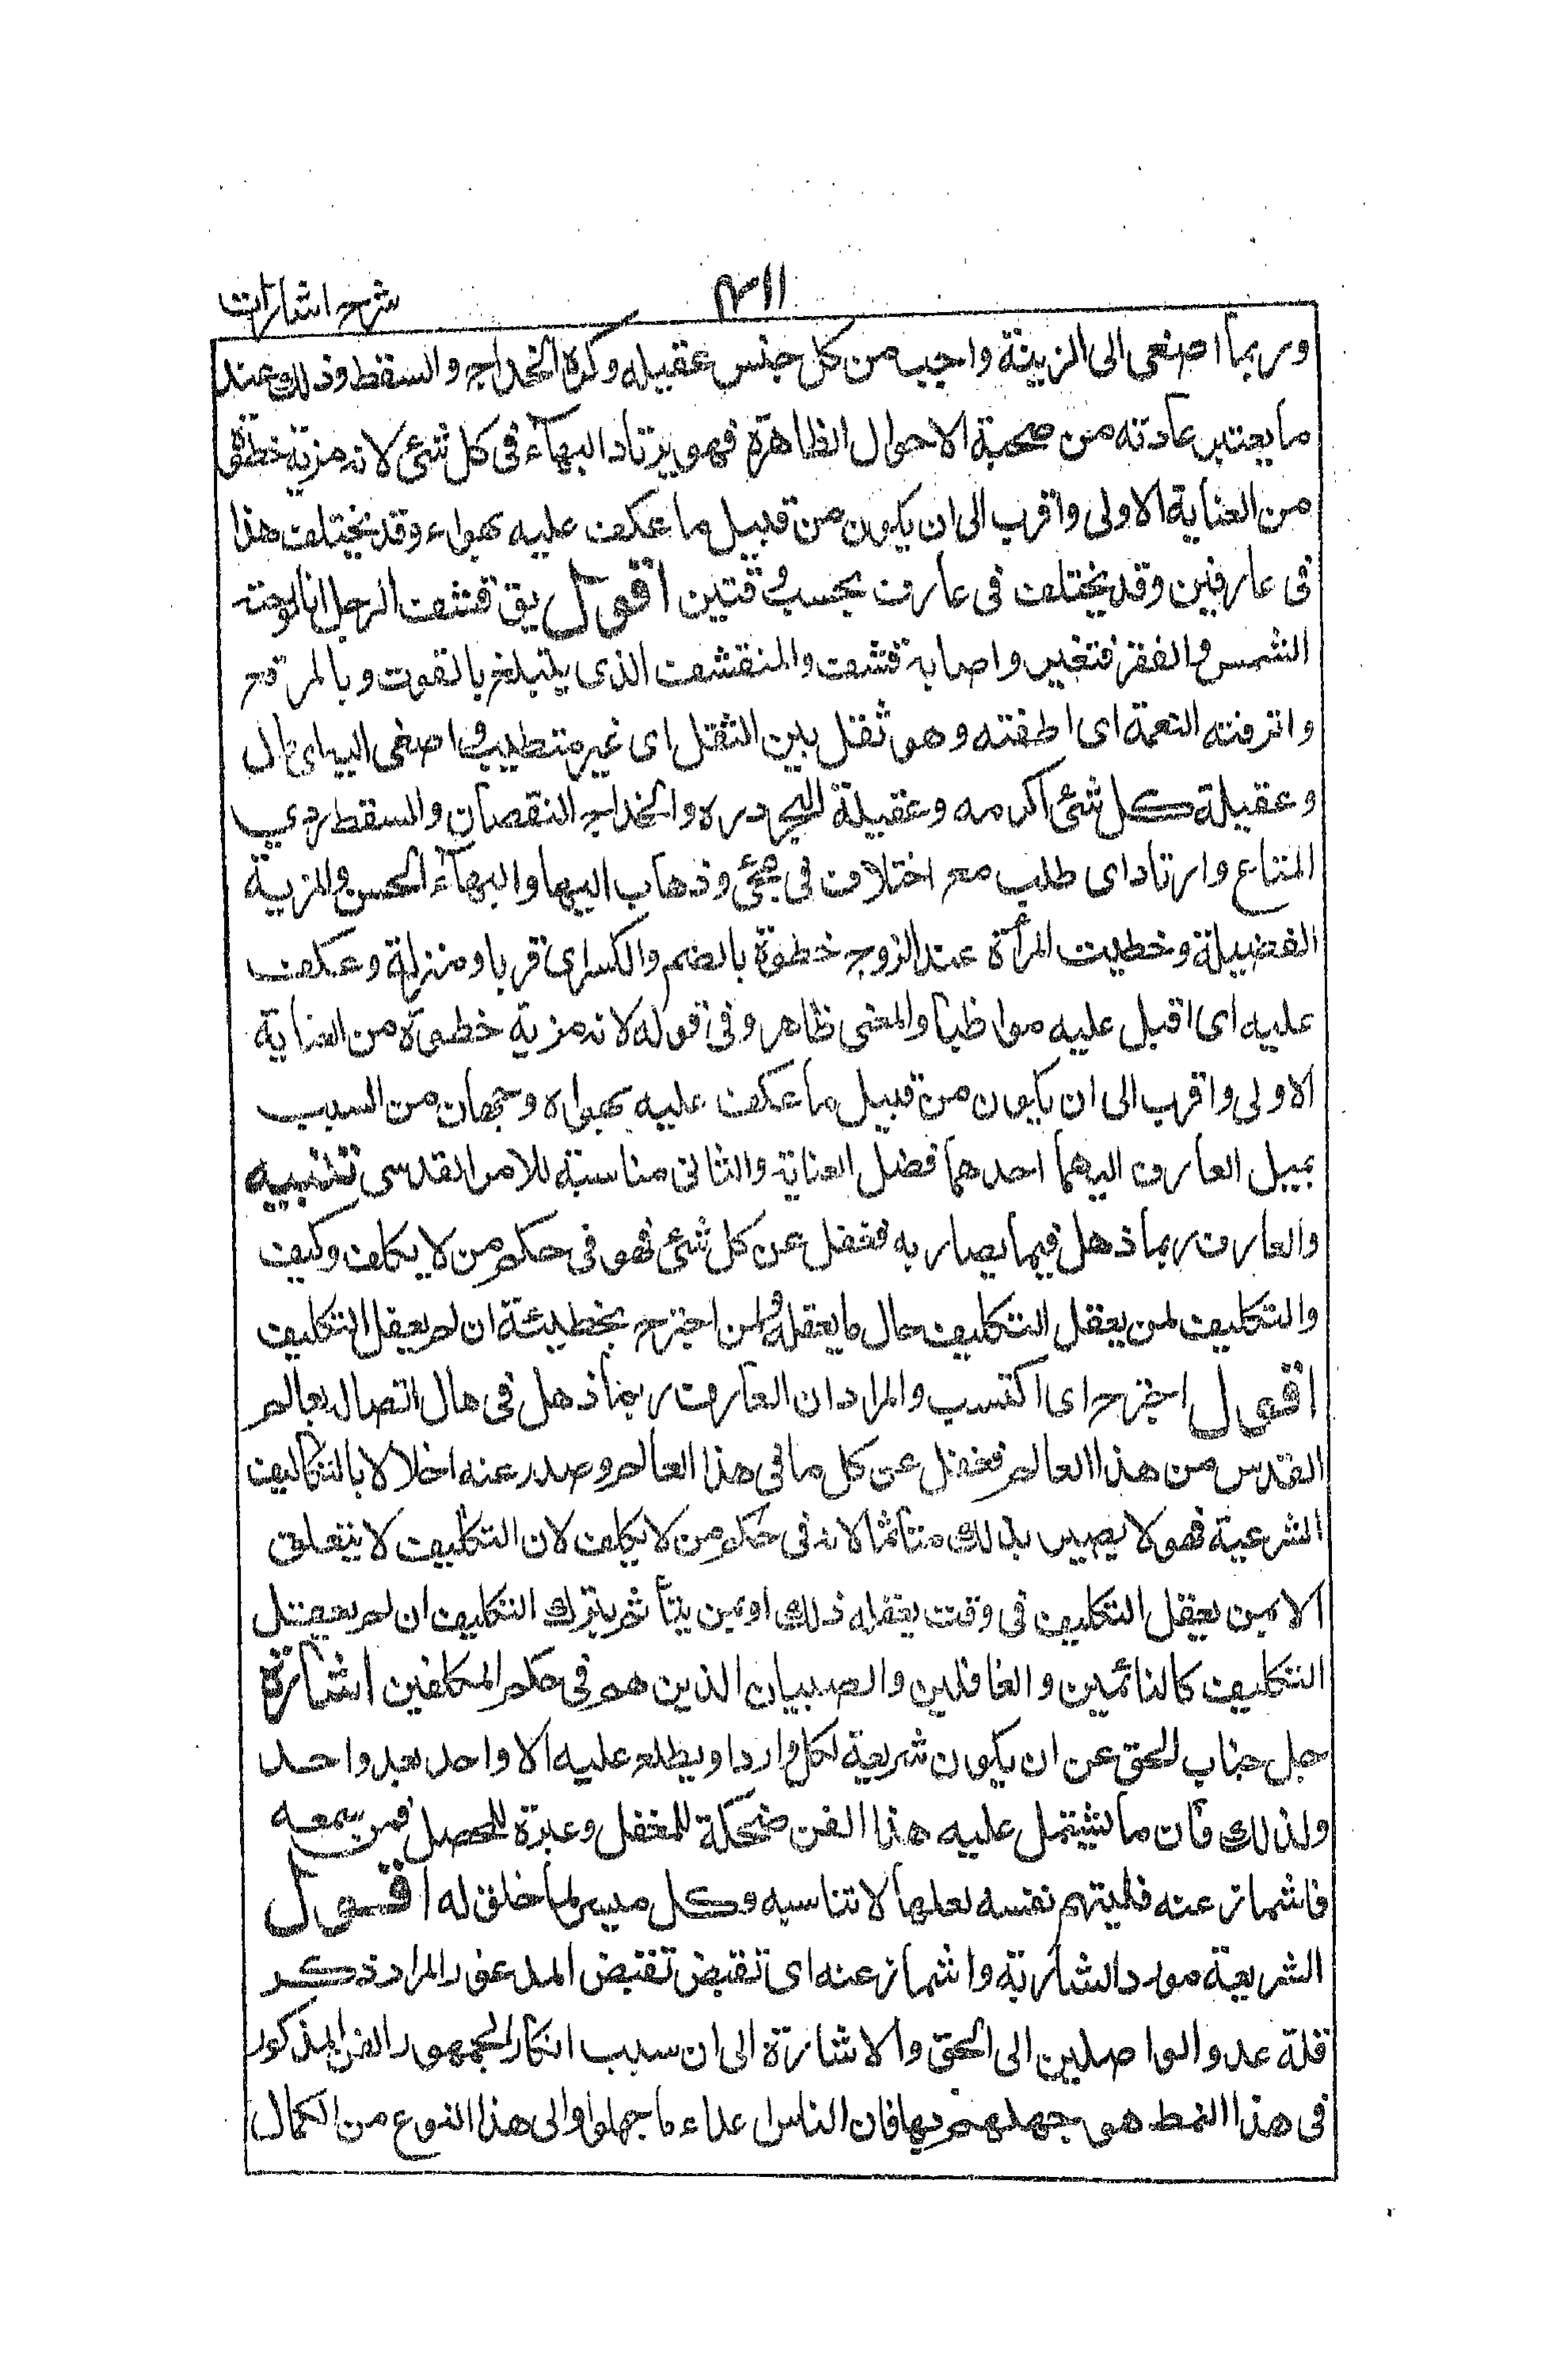 شرح اشارات
٣١١
وربما اصغى الى الزينة واحب من كل جنس عقيله وكره الخداج والسقط وذلك عند
ما يعتبر عادته من صحبة الاحوال الظاهرة فهو يرتاد البهاء فى كل شئ لانه مزية خطوة
من العناية الاولى واقرب الى ان يكون من قبيل ما عكف عليه بهواء وقد يختلف هذا
فى عارفين وقد يختلف فى عارف بحسب وقتين اقول يق قشف الرجل اذا لوحته
الشمس والفقر فتغير واصابه قشف والمتقشف الذى يتبلغ بالقوت وبالمرقع
واترفته النعمة اى اطغته وهو ثقل بين الثقل اى غير متطيب واصغى اليه اى مال
وعقيلة كل شئ اكرمه وعقيلة البحر دره والخداج النقصان والسقط ردي
المتاع وارتاد اى طلب مع اختلاف فى مجئ وذهاب اليها والبهاء الحسن والمزية
الفضيلة وخطيت المرأة عند الزوج خطوة بالضم والكسر اى قربا ومنزلة وعكف
عليه اى اقبل عليه مواظبا والمعنى ظاهر وفى قوله لانه مزية خطوة من العناية
الاولى واقرب الى ان يكون من قبيل ما عكف عليه بهواه وجهان من السبب
بميل العارف اليهما احدهما فضل العناية والثانى مناسبة للامر القدسى تنبيه
والعارف ربما ذهل فيما يصار به فغفل عن كل شئ فهو فى حكم من لا يكلف وكيف
والتكليف لمن يعقل التكليف حال ما يعقله ولمن اجترح بخطيئة ان لم يعقل التكليف
اقول اجترح اى اكتسب والمراد ان العارف ربما ذهل فى حال اتصاله بعالم
القدس من هذا العالم فغفل عن كل ما فى هذا العالم وصدر عنه اخلالا بالتكاليف
الشرعية فهو لا يصير بذلك متأثما لانه فى حكم من لا يكلف لان التكليف لا يتعلق
الا بمن يعقل التكليف فى وقت يعقله ذلك او بمن يتأثم بترك التكليف ان لم يعقل
التكليف كالنائمين والغافلين والصبيان الذين هم فى حكم المكلفين اشارة
جل جناب الحق عن ان يكون شريعة لكل وارد او يطلع عليه الا واحد بعد واحد
ولذلك فان ما يشتمل عليه هذا الفن ضحكة للمغفل وعبرة للمحصل فمن سمعه
فاشماز عنه فليتهم نفسه لعلها لا تناسبه وكل ميسر لما خلق له اقول
الشريعة مورد الشاربة واشماز عنه اى تقبض تقبض المدعو والمراد ذكر
قلة عدو الواصلين الى الحق والاشارة الى ان سبب انكار الجمهور الفن المذكور
فى هذا النمط هو جهلهم بها فان الناس اعداء ما جهلوا والى هذا النوع من الكمال